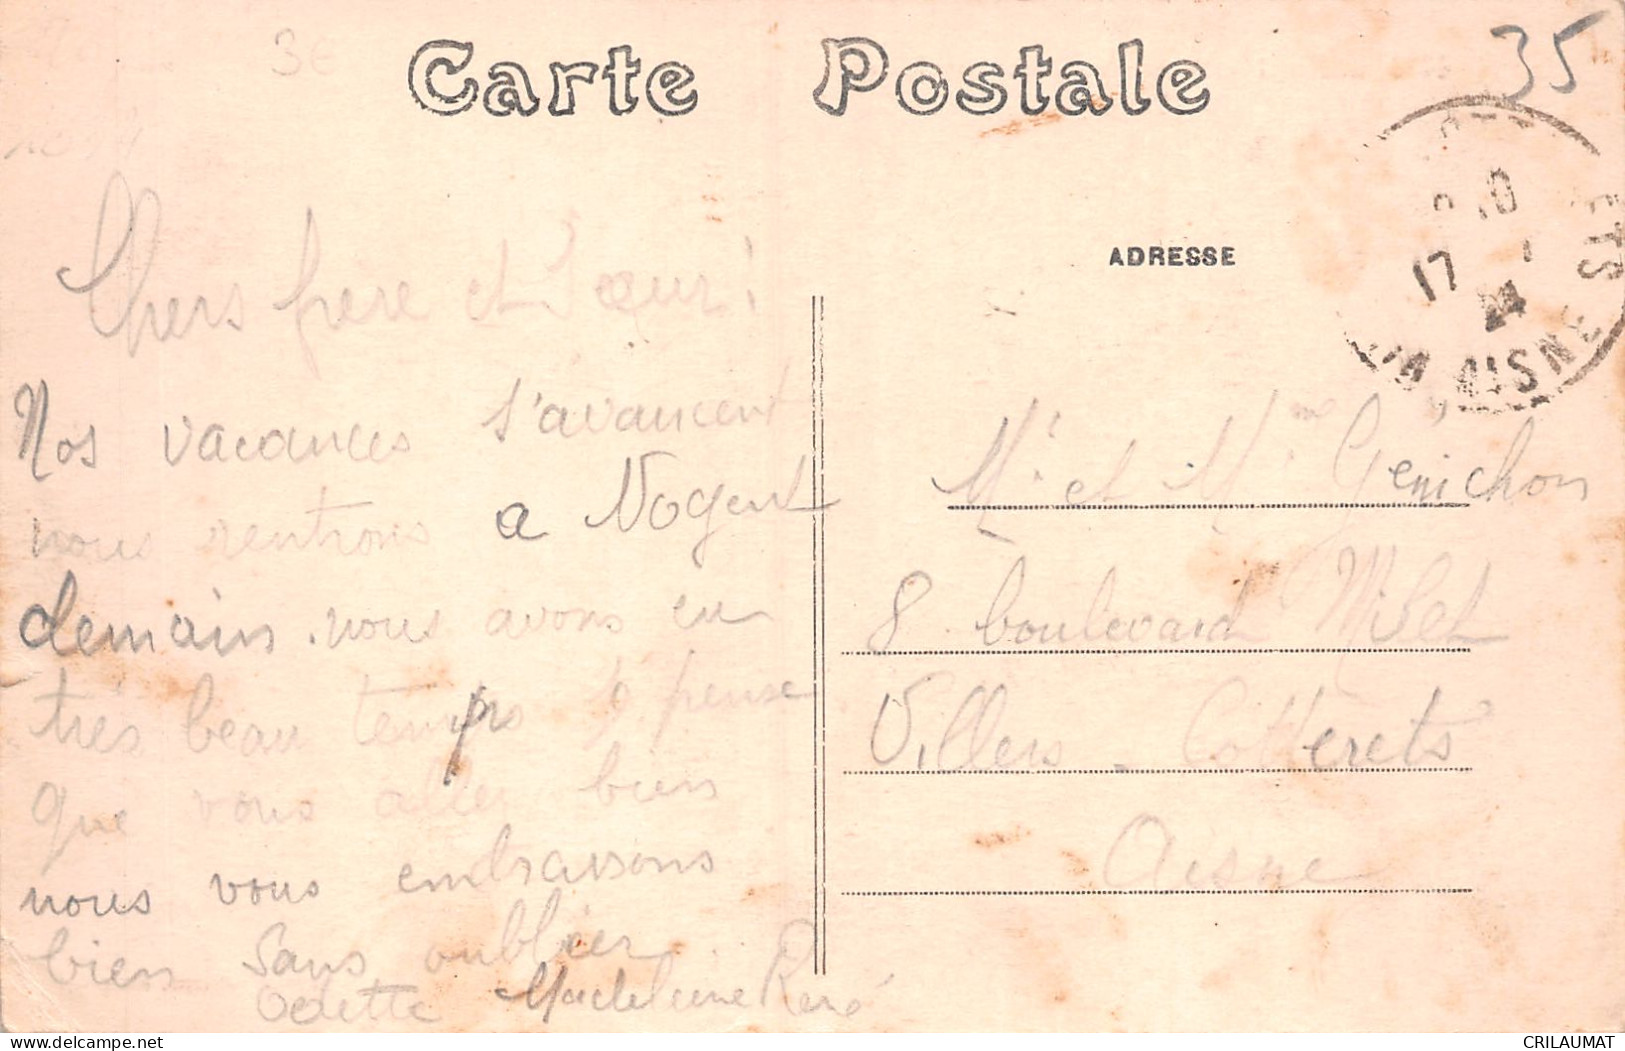 Carte Postale
35
3€
ADRESSE
17
24
ETS
AISNE
Chers frere et Sœur!
Nos vacances s'avancent
nous rentrons a Nogent
demain. nous avons eu
très beau temps je pense
que vous allez bien
nous vous embrassons
bien Sans oublier
Odette Madeleine René
Mr et Mme Genichon
8 boulevard
Villers-Cotterets
Aisne
CRILAUMAT